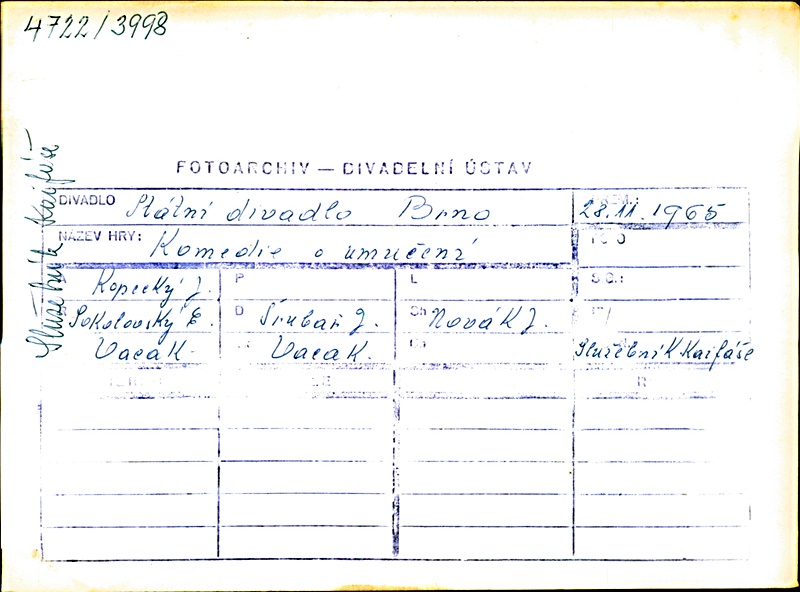 4722/3998
Služebník Kaifáše
FOTOARCHIV — DIVADELNÍ ÚSTAV
DIVADLO Státní divadlo Brno 28.11.1965
NÁZEV HRY: Komedie o umučení
Kopecký J. P L
Sokolovský E. D Šrubař J. Ch Novák J.
Vaca K. Vaca K. Služebník Kaifáše